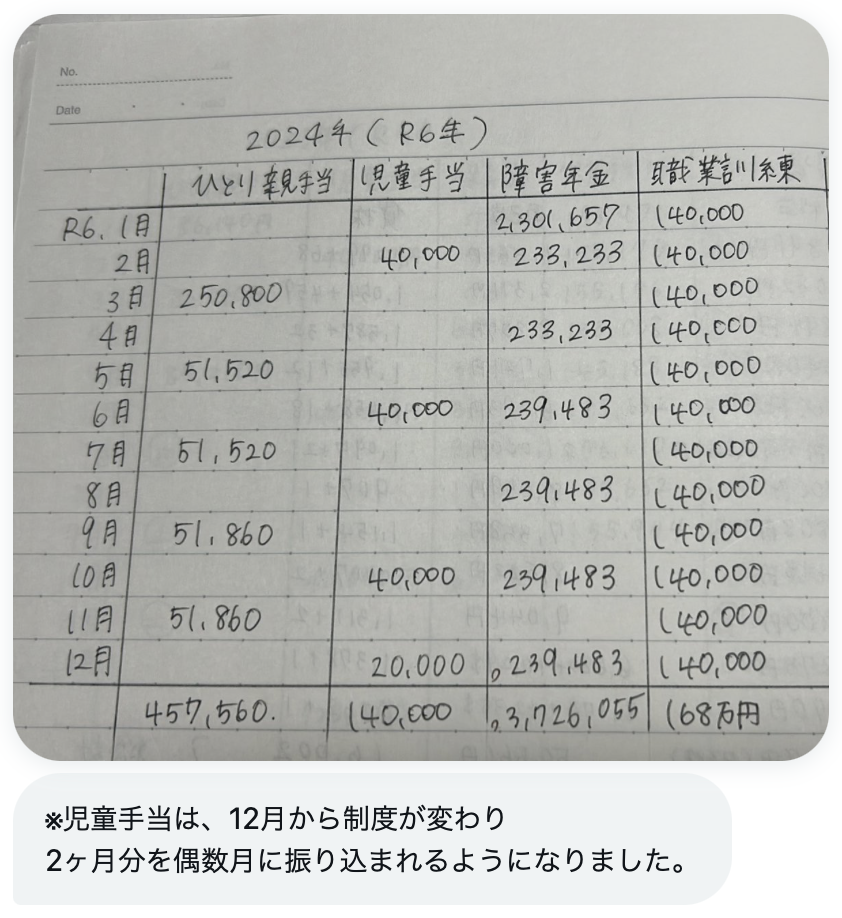 No.
Date
2024年(R6年)
ひとり親手当 児童手当 障害年金 職業訓練
R6.1月 2,301,657 140,000
2月 40,000 233,233 140,000
3月 250,800 140,000
4月 233,233 140,000
5月 51,520 140,000
6月 40,000 239,483 140,000
7月 51,520 140,000
8月 239,483 140,000
9月 51,860 140,000
10月 40,000 239,483 140,000
11月 51,860 140,000
12月 20,000 239,483 140,000
457,560. 140,000 3,726,055 168万円
※児童手当は、12月から制度が変わり
2ヶ月分を偶数月に振り込まれるようになりました。